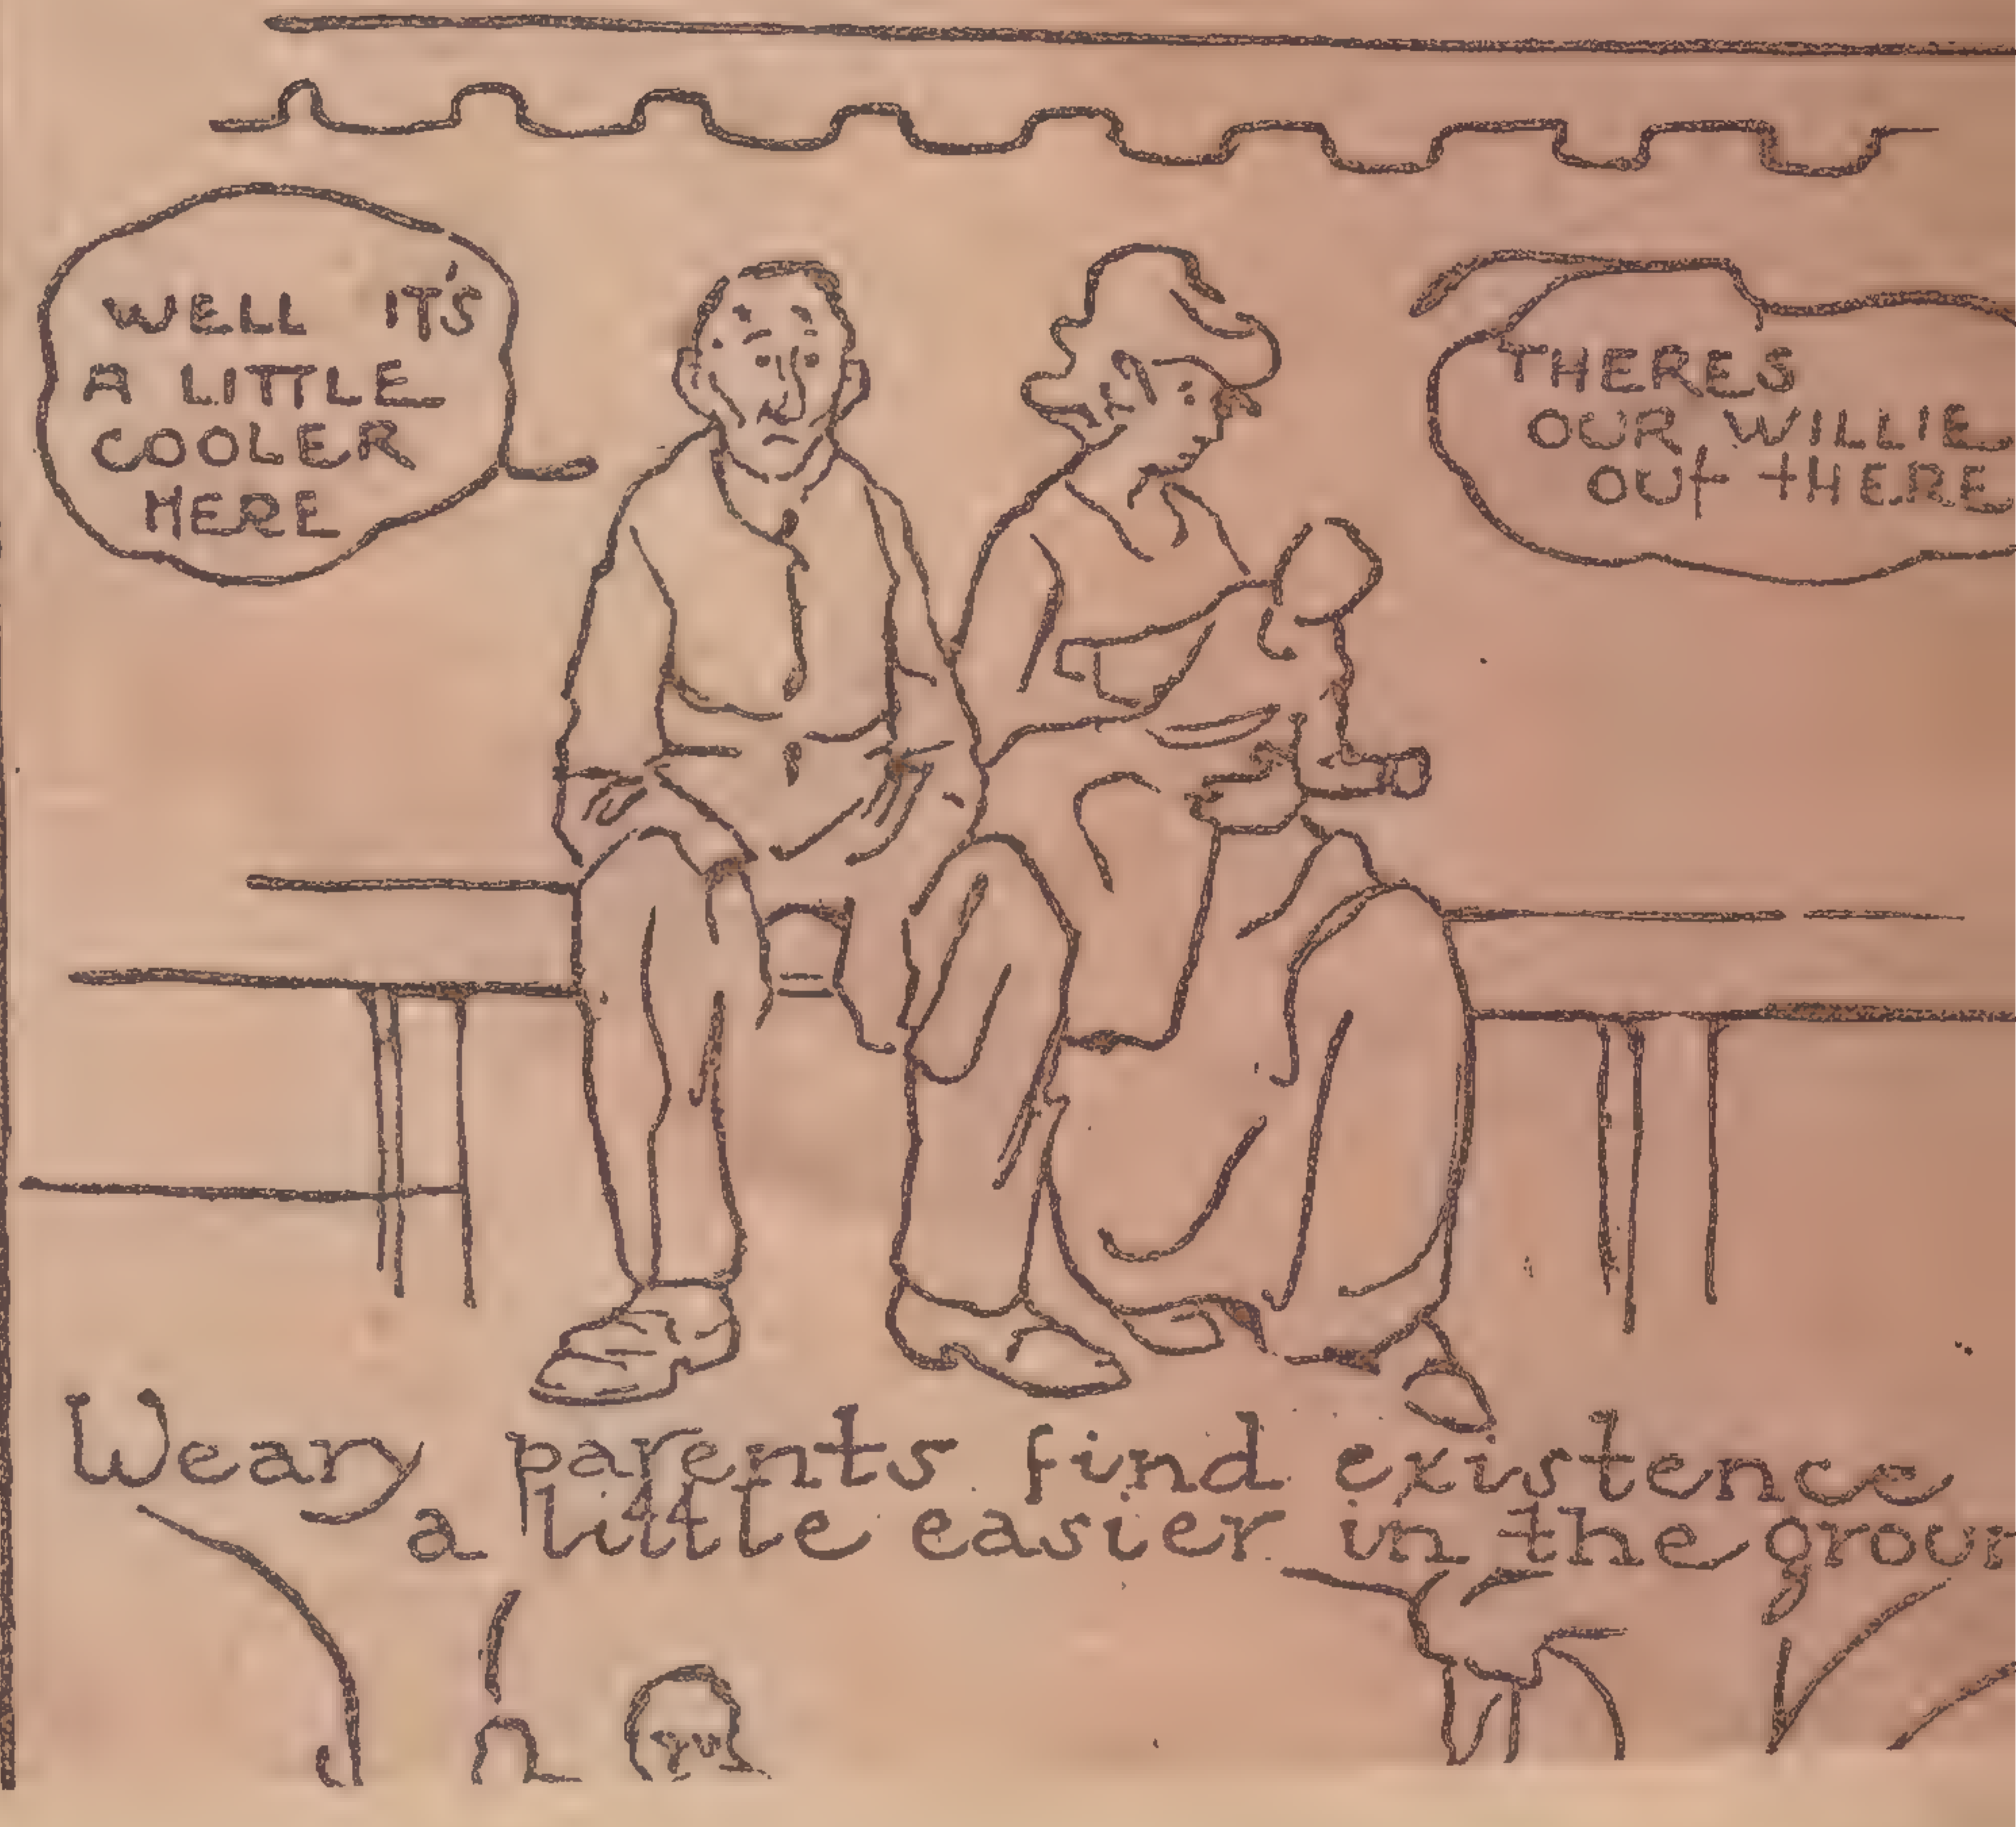 WELL IT'S
A LITTLE
COOLER
HERE
THERES
OUR WILLIE
OUT THERE
Weary parents find existence
a little easier in the